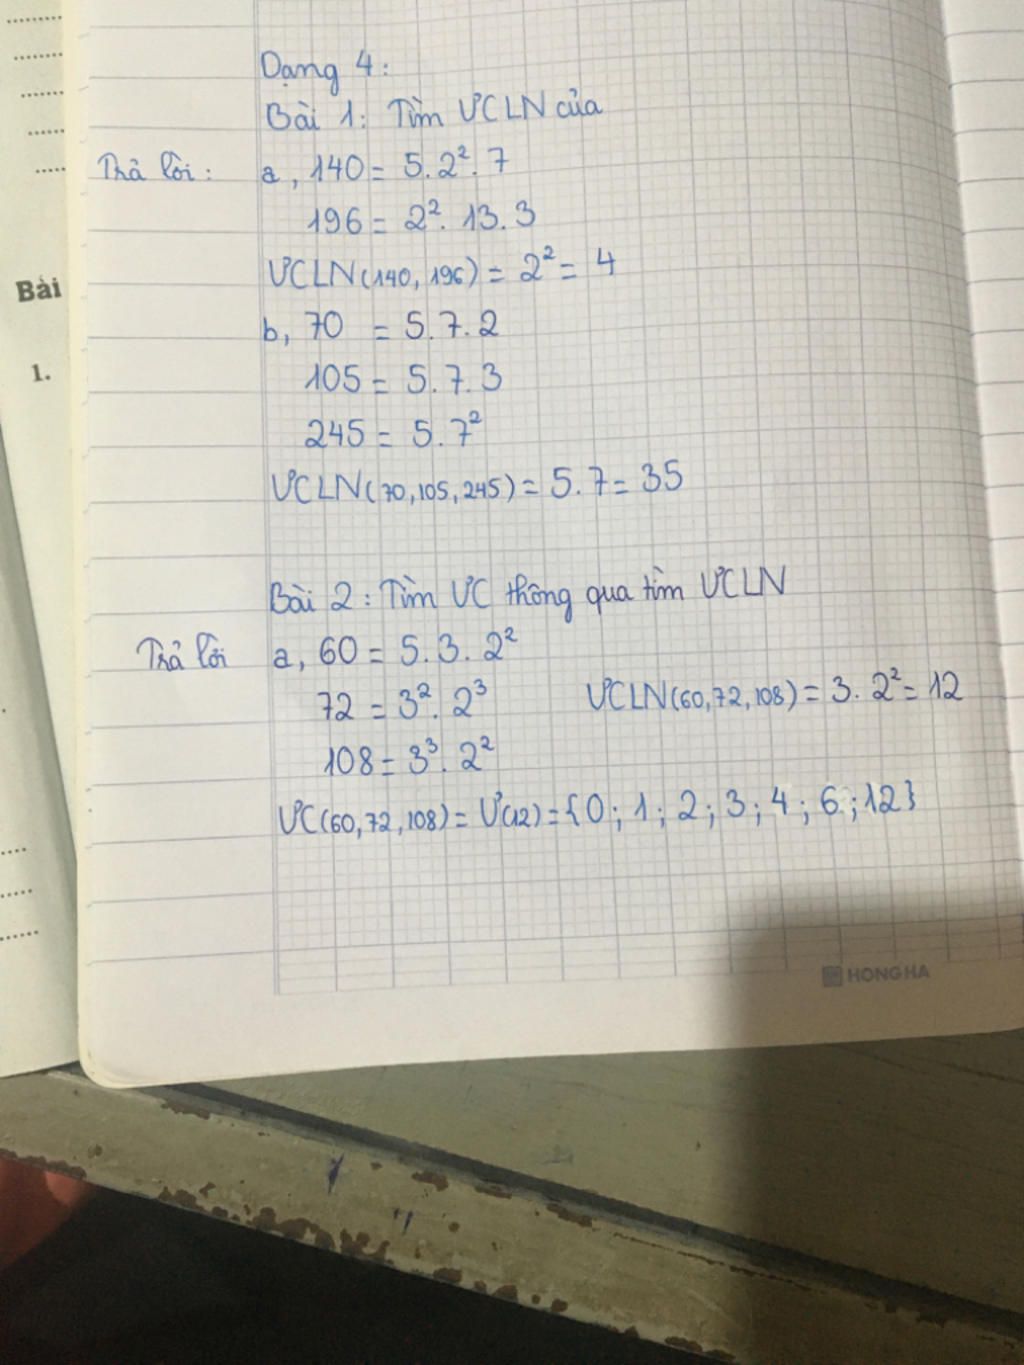 Dạng 4:
Bài 1: Tìm ƯCLN của
Trả lời: a, 140 = 5. 2². 7
196 = 2². 13. 3
ƯCLN(140, 196) = 2² = 4
b, 70 = 5. 7. 2
105 = 5. 7. 3
245 = 5. 7²
ƯCLN(70, 105, 245) = 5. 7 = 35
Bài 2: Tìm ƯC thông qua tìm ƯCLN
Trả lời a, 60 = 5. 3. 2²
72 = 3². 2³ ƯCLN(60, 72, 108) = 3. 2² = 12
108 = 3³. 2²
ƯC(60, 72, 108) = Ư(12) = {0; 1; 2; 3; 4; 6; 12}
HONG HA
Bài
1.